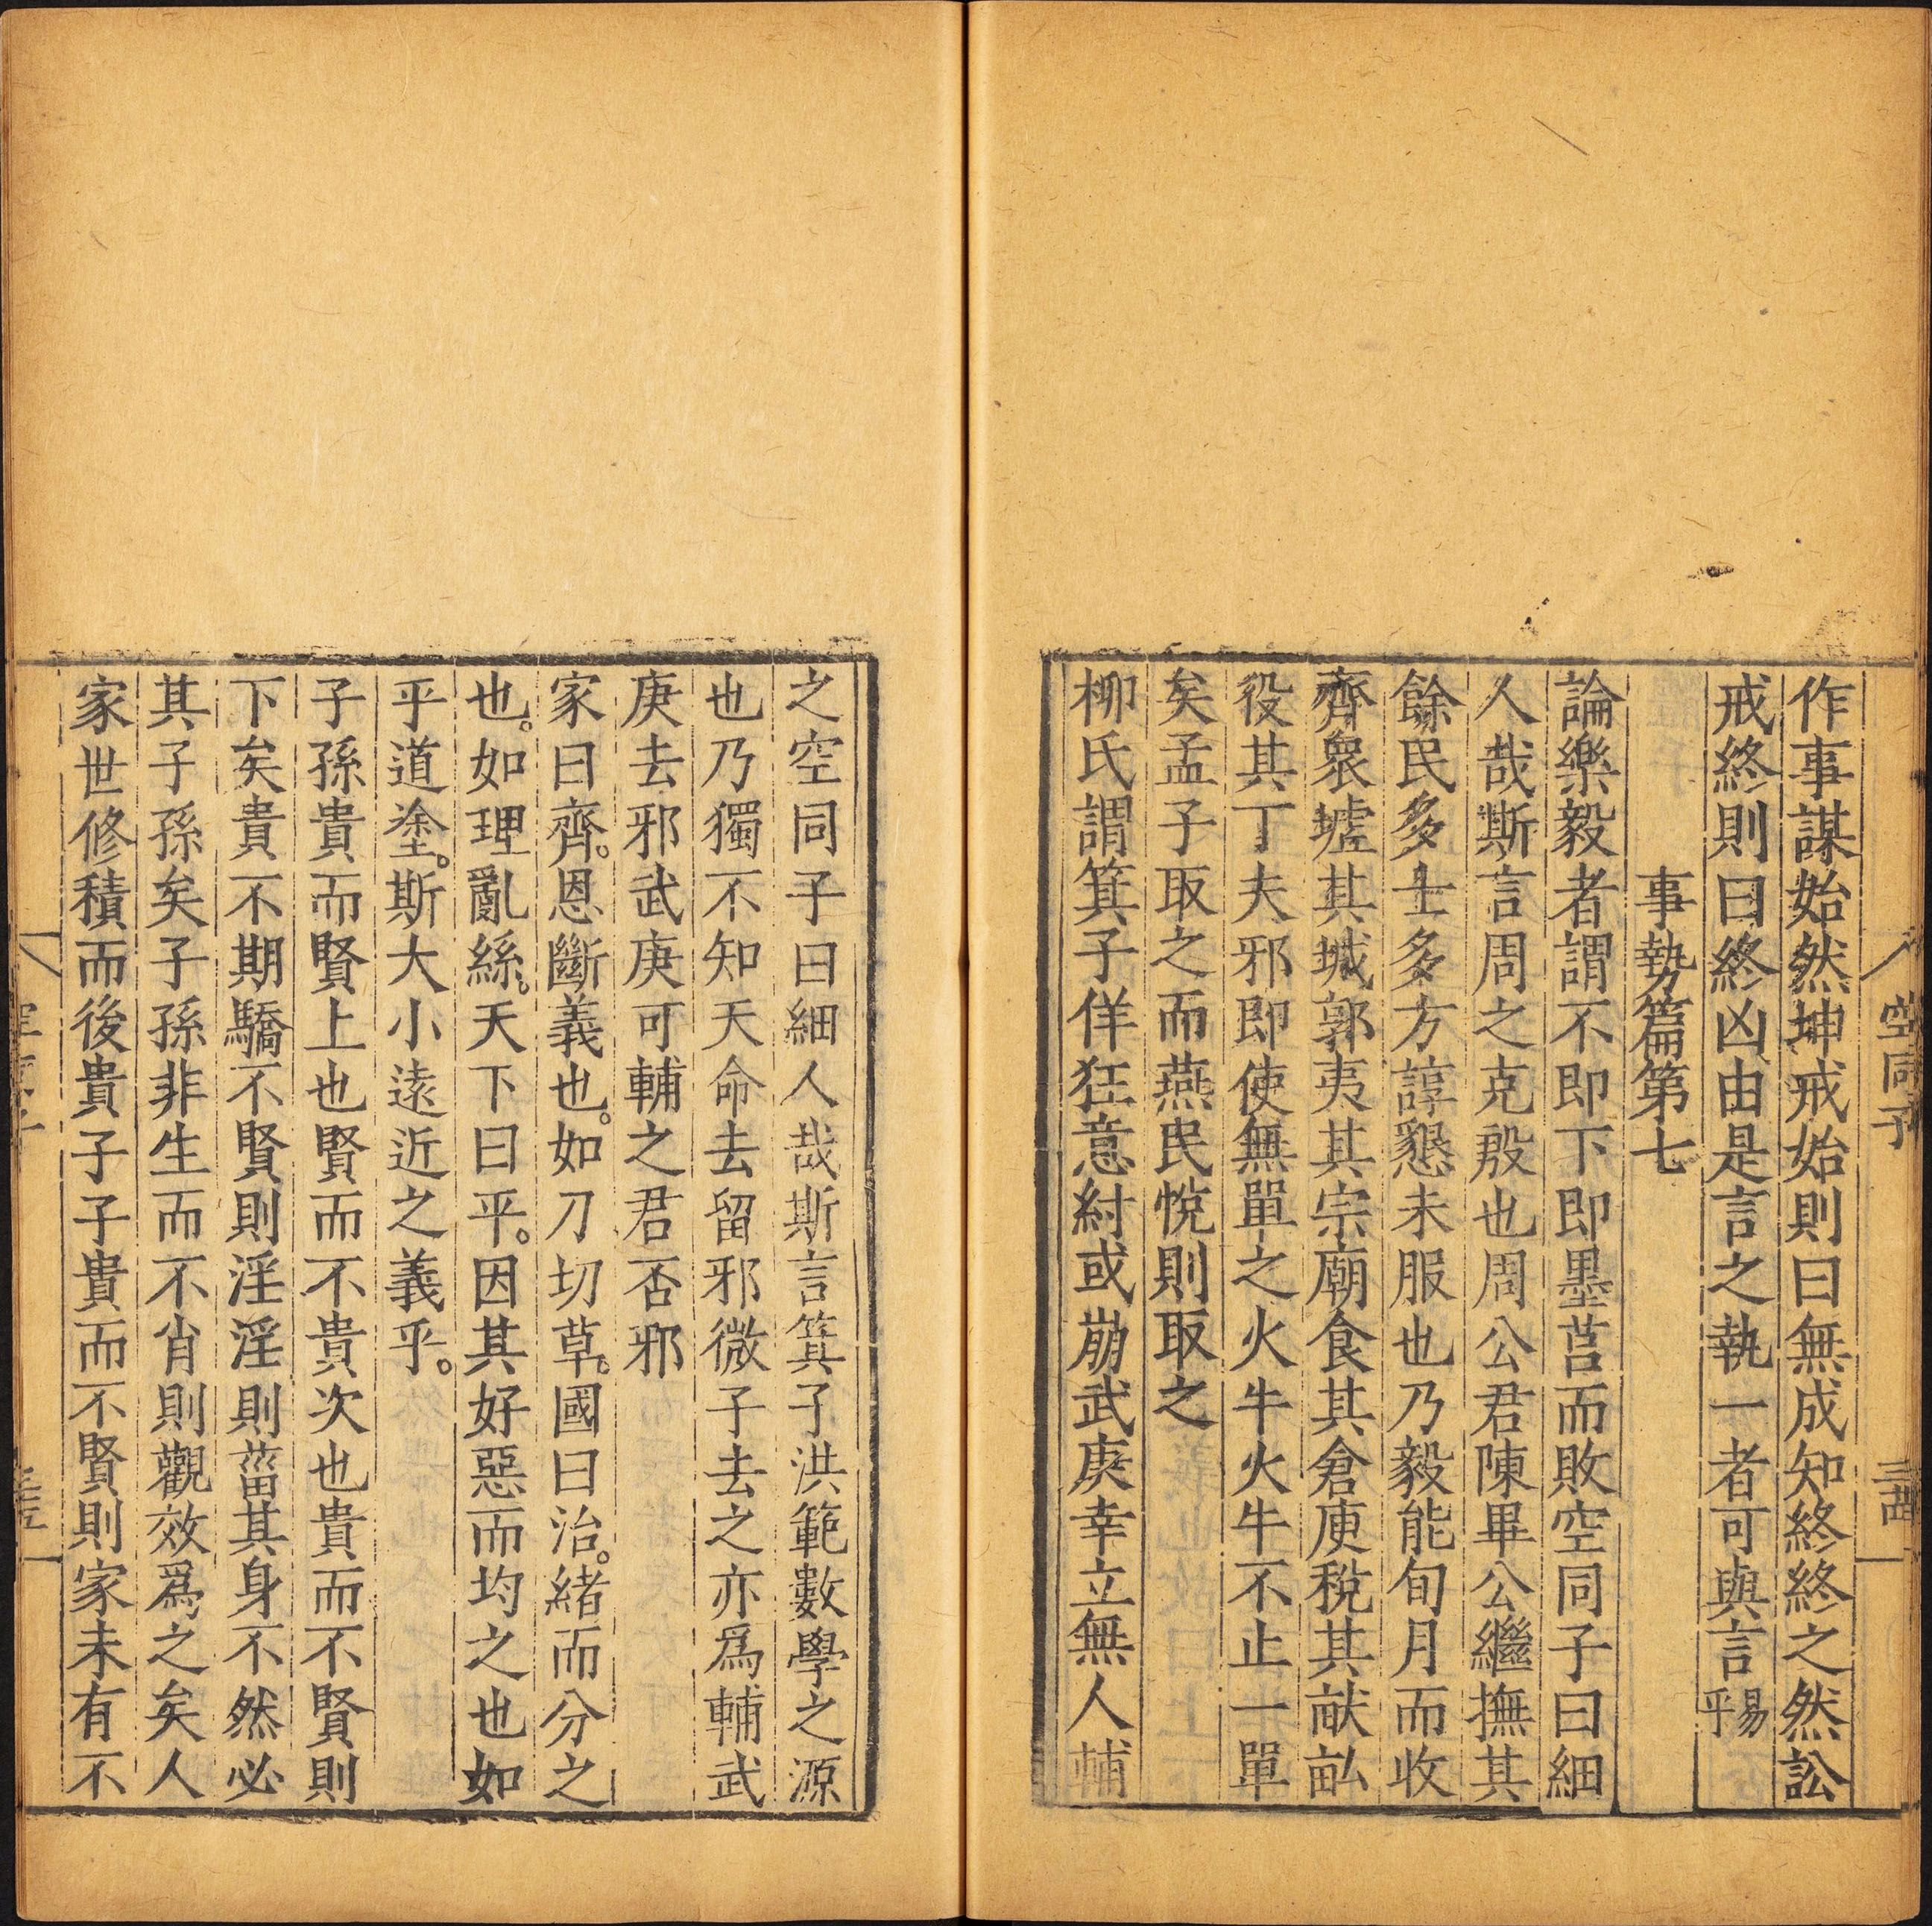 空同子
三四
作事謀始然坤戒始則曰無成知終終之然訟
戒終則曰終凶由是言之執一者可與言易乎
事勢篇第七
論樂毅者謂不即下即墨莒而敗空同子曰細
人哉斯言周之克殷也周公君陳畢公繼撫其
餘民多士多方諄懇未服也乃毅能旬月而收
齊衆墟其城郭夷其宗廟食其倉庾稅其畎畝
役其丁夫邪即使無單之火牛火牛不止一單
矣孟子取之而燕民悅則取之
柳氏謂箕子佯狂意紂或崩武庚幸立無人輔
之空同子曰細人哉斯言箕子洪範數學之源
也乃獨不知天命去留邪微子去之亦爲輔武
庚去邪武庚可輔之君否邪
家曰齊。恩斷義也。如刀切草。國曰治。緒而分之
也。如理亂絲。天下曰平。因其好惡而均之也如
乎道塗。斯大小遠近之義乎。
子孫貴而賢上也賢而不貴次也貴而不賢則
下矣貴不期驕不賢則淫淫則菑其身不然必
其子孫矣子孫非生而不肖則觀效爲之矣人
家世修積而後貴子子貴而不賢則家未有不